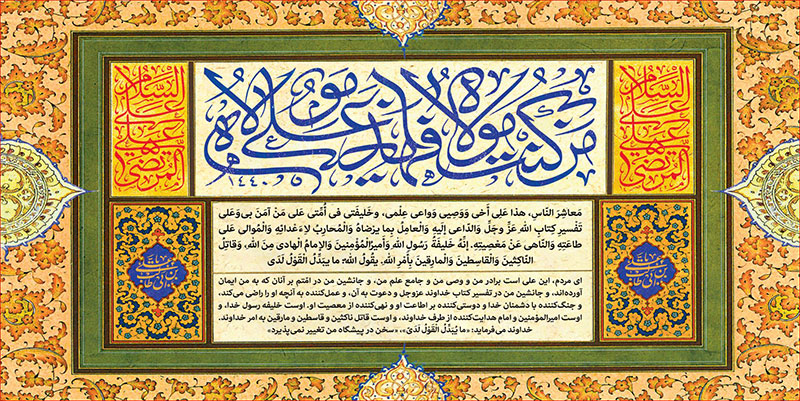 من كنت مولاه فهذا علي مولاه
١٤٤٠
السلام
على
علي
المرتضى
السلام
على
علي
المرتضى
مَعاشِرَ النّاسِ، هذا عَلِی أخی وَوَصِیی وَواعی عِلْمی، وخَلیفَتی فی اُمَّتی عَلی مَنْ آمَنَ بی وَعَلی
تَفْسیرِ کِتابِ الله عَزَّ وَجَلَّ وَالدّاعی إلَیهِ وَالْعامِلُ بِما یرْضاهُ وَالْمُحارِبُ لِاَعْدائِهِ وَالْمُوالی عَلی
طاعَتِهِ وَالنّاهی عَنْ مَعْصِیتِهِ. إنَّهُ خَلیفَةُ رَسُولِ الله وَ أمیرُالْمُؤْمِنینَ وَالإمامُ الْهادی مِنَ الله، وَقاتِلُ
النّاکِثینَ وَالْقاسِطینَ وَالْمارِقینَ بِأَمْرِ الله. یقُولُ الله: ما یبَدَّلُ الْقَوْلُ لَدَی
ای مردم، این علی است برادر من و وصی من و جامع علم من، و جانشین من در امّتم بر آنان که به من ایمان
آورده‌اند، و جانشین من در تفسیر کتاب خداوند عزوجل و دعوت به آن، و عمل‌کننده به آنچه او را راضی می‌کند،
و جنگ‌کننده با دشمنان خدا و دوستی‌کننده بر اطاعت او و نهی‌کننده از معصیت او. اوست خلیفه رسول خدا، و
اوست امیرالمؤمنین و امام هدایت‌کننده از طرف خداوند، و اوست قاتل ناکثین و قاسطین و مارقین به امر خداوند.
خداوند می‌فرماید: «ما یُبَدَّلُ الْقَوْلُ لَدَیَّ»، «سخن در پیشگاه من تغییر نمی‌پذیرد»